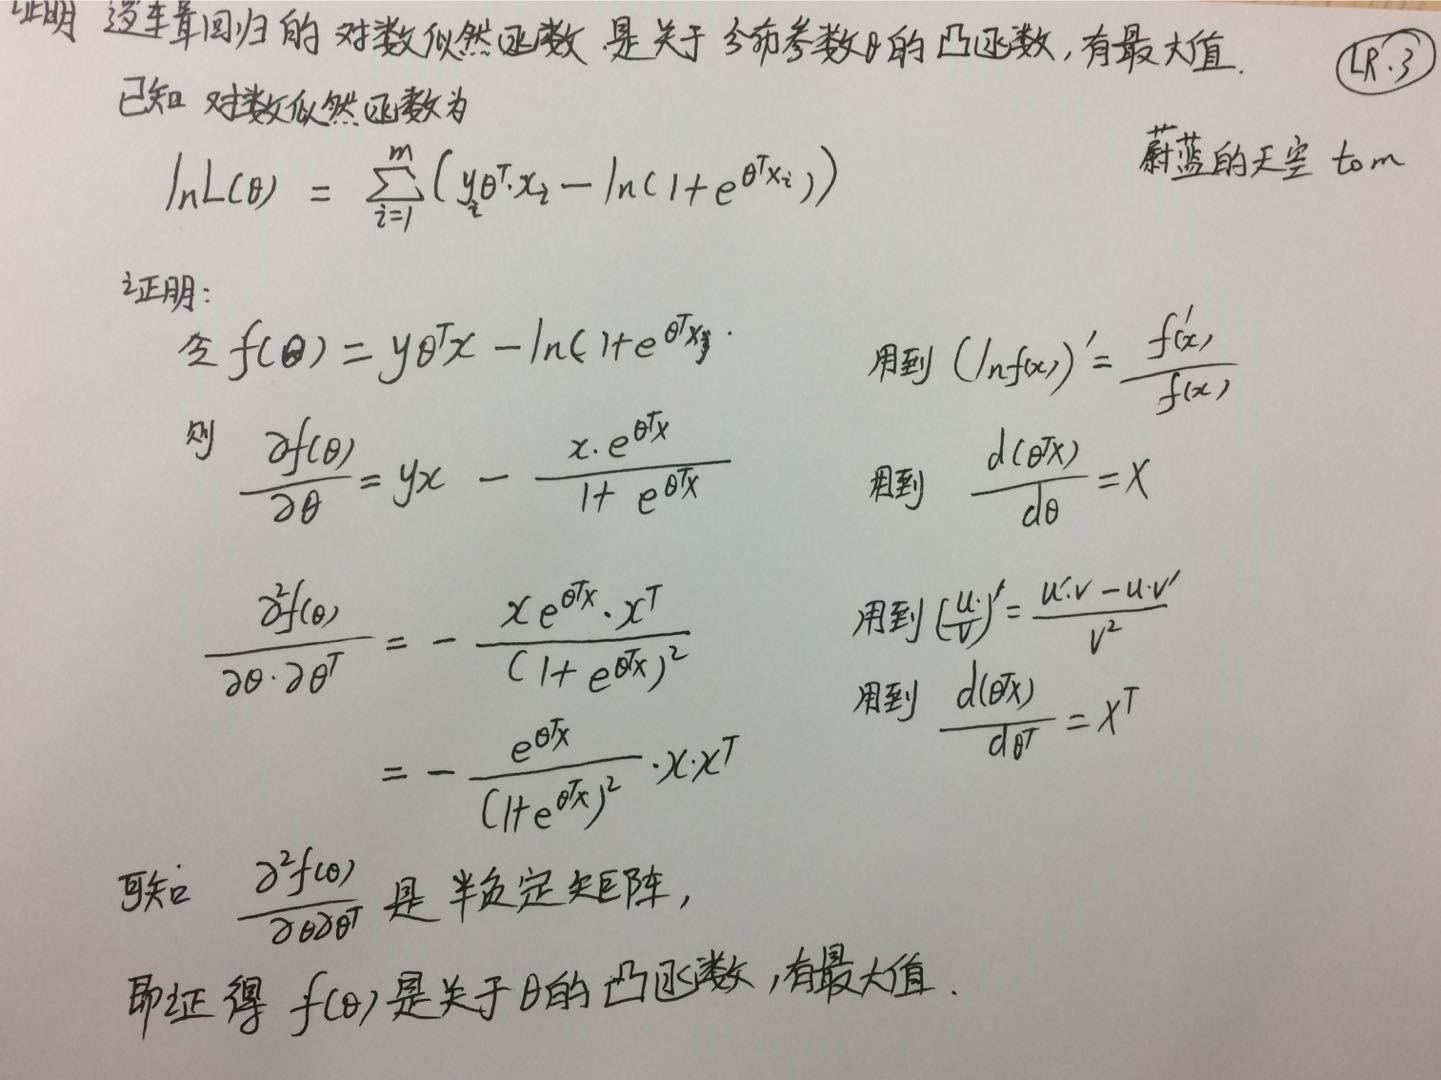 证明 逻辑回归的对数似然函数是关于分布参数θ的凸函数,有最大值.
LR.3
已知 对数似然函数为
蔚蓝的天空 tom
lnL(θ) = ∑_{i=1}^{m} (y_iθ^T·x_i - ln(1+e^{θ^Tx_i}))
证明:
令 f(θ) = yθ^Tx - ln(1+e^{θ^Tx}).
用到 (lnf(x))' = f'(x)/f(x)
则 ∂f(θ)/∂θ = yx - x·e^{θ^Tx}/(1+e^{θ^Tx})
用到 d(θ^Tx)/dθ = X
∂²f(θ)/(∂θ·∂θ^T) = - xe^{θ^Tx}·x^T/(1+e^{θ^Tx})²
用到 (u/v)' = (u'·v-u·v')/v²
用到 d(θ^Tx)/dθ^T = X^T
= - e^{θ^Tx}/(1+e^{θ^Tx})² ·x·x^T
可知 ∂²f(θ)/∂θ∂θ^T 是半负定矩阵,
即证得 f(θ)是关于θ的凸函数,有最大值.